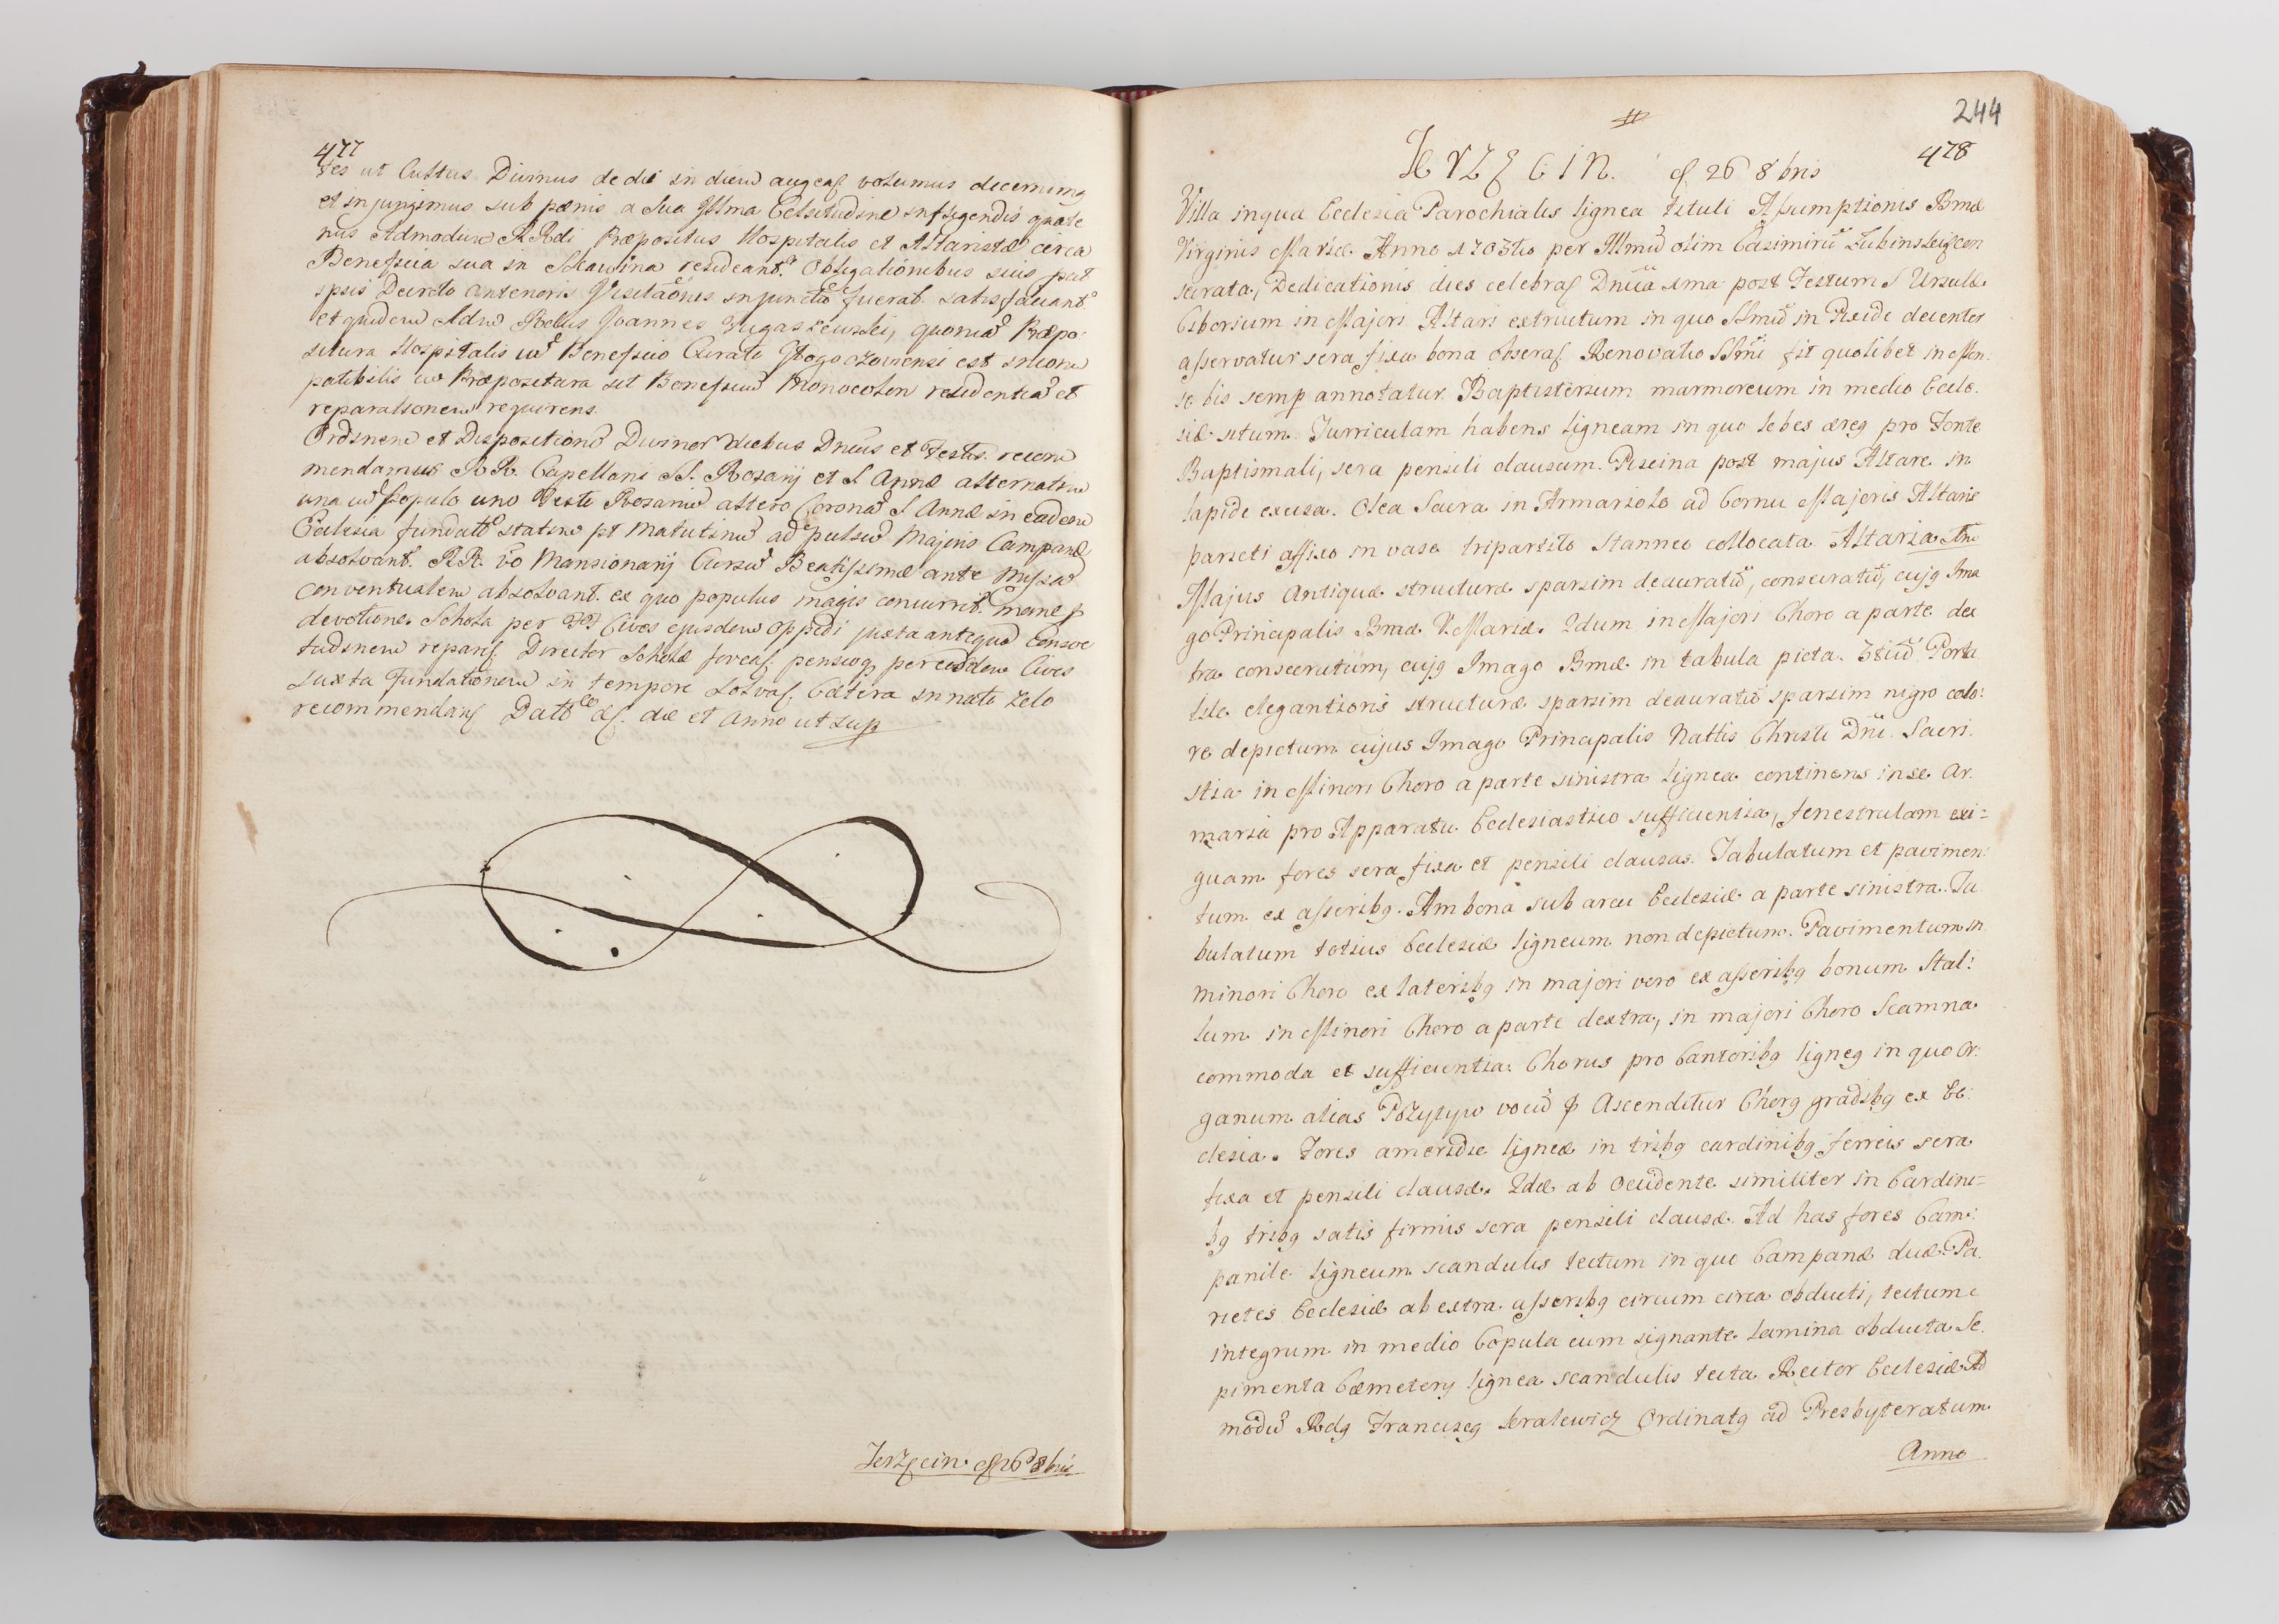 477
tes ut Cultus Divinus de die in diem augeaſ volumus decernimg
et injungimus sub pœnis a Sua Illma Celsitudine infligendis quate
nus Admodum RRdi Præpositus Hospitalis et Altaristæ circa
Beneficia sua in Skawina resideant. Obligationibus suis put
ipsis Decreto anterioris Visitaõnis injuncto fuerat satisfaciant
et quidem Adm Rdus Joannes quoniã Præpo
situra Hospitalis cũ Beneficio Curato est incom
patibilis cũ Præpositura sit Beneficiũ Monocolon residentiã et
reparationem requirens.
Ordinem et Dispositionẽ Divinor diebus Dnĩis et Festis recom
mendamus RR. Capellani SS. Rosarij et S Annæ alternatim
una cũ Populo uno Festo Rosariũ altero Coronã S Annæ in eadem
Ecclesia fundatõ statim pt Matutinũ ad pulsũ Majoris Campanæ
absolvant. RR. võ Mansionarij Cursũ Beatissimæ ante Missã
Conventualem absolvant. ex quo populus magis concurrit mane p
devotione. Schola per Cives ejusdem Oppidi juxta antiquã Consue
tudinem reparaſ Director Scholæ foveaſ. pensioq per eosdem Cives
juxta Fundationem in tempore solvaſ Cætera innato zelo
recommendanſ Datõ die et Anno ut sup
Jerzęcin 26 8bris
244
478
JERZĘCIN. 26 8bris
Villa in qua Ecclesia Parochialis lignea tituli Aſsumptionis Bmæ
Virginis Mariæ. Anno 1703tio per Illmũ olim Casimirũ Łubinski con
secrata, Dedicationis dies celebraſ Dnĩca 1ma post Festum S Ursulæ.
Ciborium in Majori Altari extructum in quo SSmũ in Pixide decenter
aſservatur sera fixa bona obseraſ. Renovatio SSmi fit quolibet in Men
se bis semp annotatur. Baptisterium marmoreum in medio Eccle.
siæ situm. Turriculam habens ligneam in quo lebes æreg pro Fonte
Baptismali, sera pensili clausum. Piscina post majus Altare in
lapide excisa. Olea Sacra in Armariolo ad Cornu Majoris Altaris
parieti affixo in vase tripartito stanneo collocata. Altaria
Majus Antiquæ structuræ sparsim deauratũ, consecratũ, cujg Ima
go Principalis Bmæ V. Mariæ. 2dum in Majori Choro a parte dex
tra consecratum, cujg Imago Bmæ in tabula picta. 3tiũ Porta
tile elegantioris structuræ sparsim deauratũ sparsim nigro colo:
re depictum cujus Imago Principalis Nattis Christi Dnĩ. Sacri.
stia in Minori Choro a parte sinistra lignea continens in se Ar.
maria pro Apparatu Ecclesiastico sufficientia, fenestrulam exi=
guam fores sera fixa et pensili clausas. Tabulatum et pavimen:
tum ex aſseribg. Ambona sub arcu Ecclesiæ a parte sinistra. Ta
bulatum totius Ecclesiæ ligneum non depictum. Pavimentum in
minori Choro ex lateribg in majori vero ex aſseribg bonum. Stal:
lum in Minori Choro a parte dextra, in majori Choro Scamna
commoda et sufficientia. Chorus pro Cantoribg ligneg in quo Or:
ganum alias Pozytyw vocũ Ascenditur Chorg gradibg ex Ec:
clesia. Fores a meridie ligneæ in tribg cardinibg ferreis sera
fixa et pensili clausæ. 2dæ ab Occidente similiter in Cardini=
bg tribg satis firmis sera pensili clausæ. Ad has fores Cam:
panile ligneum scandulis tectum in quo Campanæ duæ. Pa
rietes Ecclesiæ ab extra aſseribg circum circa obducti, tectum
integrum in medio Copula cum signante lamina obducta. Se.
pimenta Cæmeterij lignea scandulis tecta. Rector Ecclesiæ Ad
modũ Rdg Franciszeg Kralewicz Ordinatg ad Presbyteratum
Anno